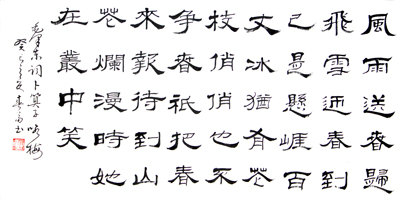 風雨送春歸
飛雪迎春到
已是懸崖百
丈冰猶有花
枝俏俏也不
争春祇把春
來報待到山
花爛漫時她
在叢中笑
毛澤东词卜算子咏梅
癸巳之夏